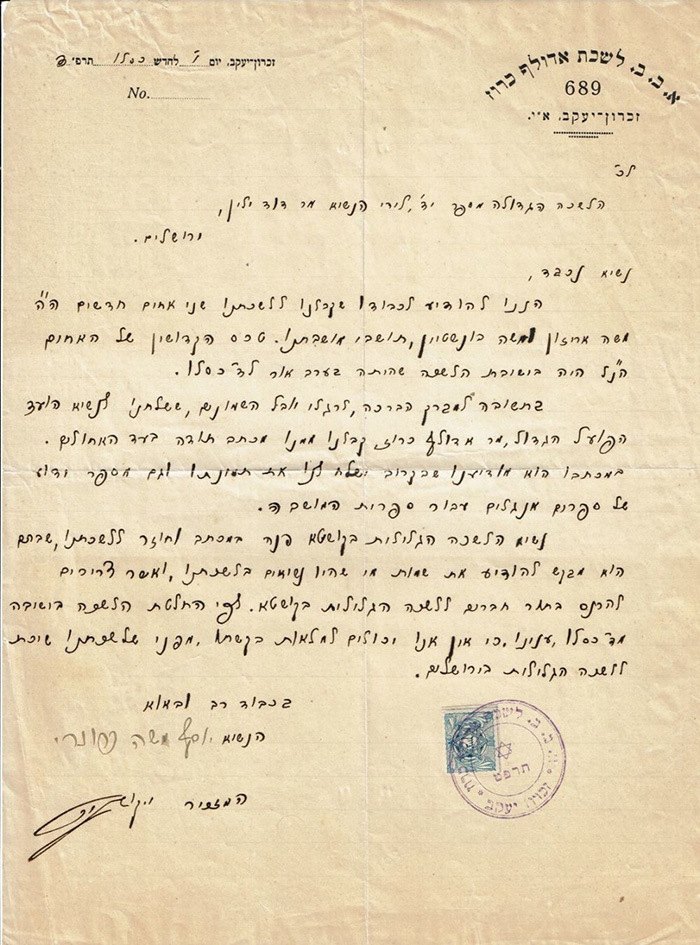 א. ב. ב. לשכת אדולף כרוז
689
זכרון־יעקב, א״י.
זכרון־יעקב, יום ו׳ לחדש כסלו תרפ״
No.
לכ׳
הלשכה הגדולה מספר יד׳, לידי הנשיא מר דוד ילין,
ירושלים.
נשיא נכבד,
הננו להודיע לכבודו שקבלנו ללשכתנו שני אחים חדשים ה״ה
משה אריזון ומשה בונשטיין, תושבי מושבתנו. טכס הקדושין של האחים
הנ״ל היה בישיבת הלשכה שהיתה בערב אור לד׳ כסלו.
בתשובה למברק הברכה, לרגלי יובל השמונים, ששלחנו לנשיא הועד
הפועל הגדול, מר אדולף כרוז, קבלנו ממנו מכתב תודה בעד האחולים.
במכתבו הוא מודיענו שבקרוב ישלח לנו את תמונתו וגם מספר ידוע
של ספרים אנגלים עבור ספרית המושבה.
נשיא הלשכה הגלילית בקושטא פנה במכתב חוזר ללשכתנו, שבהם
הוא מבקש להודיע את שמות מי שהיו נשיאים בלשכתנו, ואשר צריכים
להכנס בתור חברים ללשכה הגלילית בקושטא. לפי החלטת הלשכה בישיבה
מד׳ כסלו, ענינו, כי אין אנו יכולים למלאות בקשתו, מפני שלשכתנו שיכת
ללשכה הגלילית בירושלים.
בכבוד רב ובאוא
הנשיא יוסף משה
המזכיר
א. ב. ב. לשכת
תרפט
זכרון יעקב